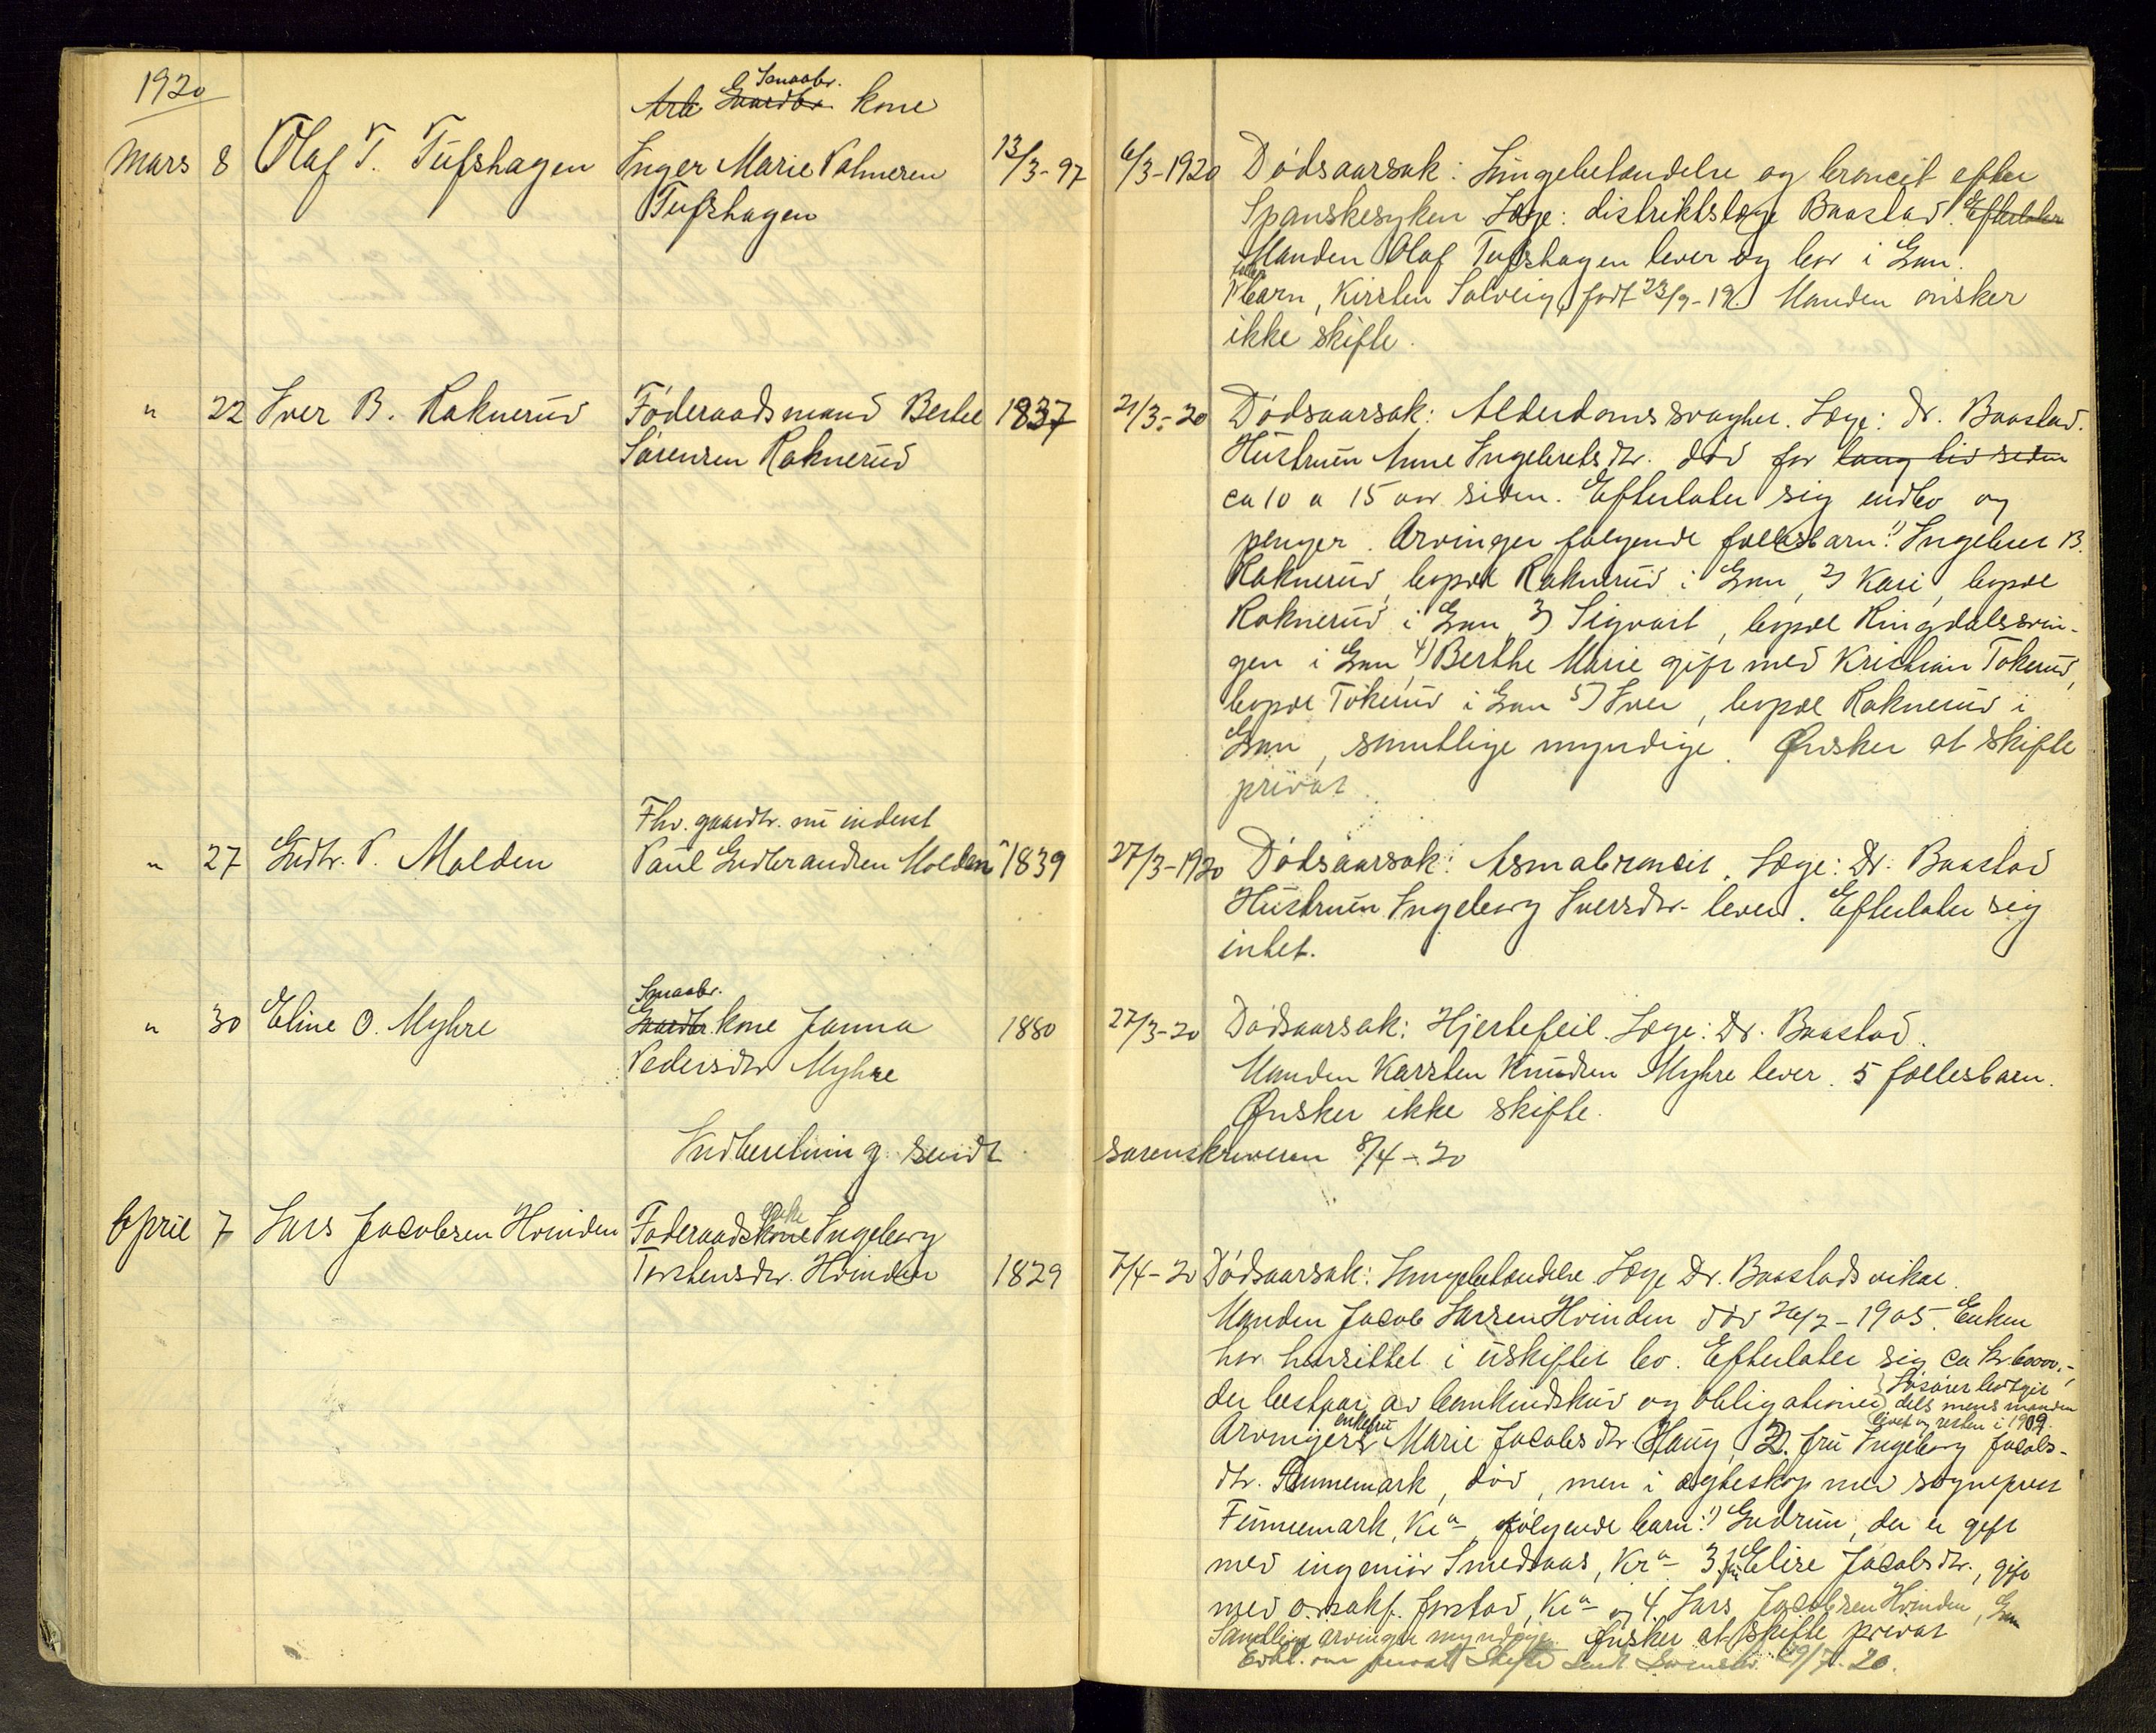 1920
Smaabr.
Arb Gaardbr. kone
Mars 8 Olaf T. Tufshagen Inger Marie Palmeren 13/3-97 6/3-1920 Dødsaarsak: Lungebetændelse og broncit efter
Tufshagen Spanskesyken Læge: distriktslæge Baastad. Efterlater
Manden Olaf Tufshagen lever og bor i Gran.
fælles
1 barn, Kirsten Solveig, født 23/9-19. Manden ønsker
ikke skifte.
" 22 Iver B. Raknerud Føderaadsmand Bertel 1837 21/3-20 Dødsaarsak: Alderdomssvaghet. Læge: Dr. Baastad.
Sørensen Raknerud Hustruen Anne Ingebretsdtr. død for lang tid siden
ca 10 a 15 aar siden. Efterlater sig indbo og
penger. Arvinger følgende fællesbarn: 1) Ingebret B.
Raknerud, bopæl Raknerud i Gran, 2) Kari, bopæl
Raknerud i Gran 3) Sigvart, bopæl Ringdalssvin-
gen i Gran 4) Berthe Marie gift med Kristian Tokerud,
bopæl Tokerud i Gran 5) Iver, bopæl Raknerud i
Gran, samtlige myndige. Ønsker at skifte
privat.
Fhv. gaardbr. nu inderst
" 27 Gudbr. P. Molden Paul Gudbrandsen Molden 1839 27/3-1920 Dødsaarsak: Asmabroncit. Læge: Dr. Baastad
Hustruen Ingeborg Iversdtr. lever. Efterlater sig
intet.
Smaabr.
" 30 Eline O. Myhre Gaardbr kone Janna 1880 27/3-20 Dødsaarsak: Hjertefeil. Læge: Dr. Baastad.
Pedersdtr Myhre Manden Karsten Knudsen Myhre lever. 5 fællesbarn.
Ønsker ikke skifte.
Indberetning sendt sorenskriveren 8/4-20
April 7 Lars Jacobsen Hvinden Føderaadskone enke Ingeborg
Torstensdtr. Hvinden 1829 7/4-20 Dødsaarsak: Lungebetændelse. Læge Dr. Baastads vikar.
Manden Jacob Larsen Hvinden død 26/2-1905. Enken
har hensittet i uskiftet bo. Efterlater sig ca kr. 6000,-
der bestaar av bankindskud og obligationer Løsøre bortgit
dels mens manden
livet og resten i 1909.
Arvinger: 1. enkefru Marie Jacobsdtr. Haug, 2. fru Ingeborg Jacobs-
dtr. Finnemark, død, men i ægteskap med sogneprest
Finnemark, Kra, følgende barn: 1) Gudrun, der er gift
med ingeniør Smedsaas, Kra 3. fru Elise Jacobsdtr., gift
med o.r.sakf. Jorstad, Kra og 4. Lars Jacobsen Hvinden, Gran
Samtlige arvinger myndige. Ønsker at skifte privat
Erkl. om privat skifte sendt Sorenskr. 29/7-20.